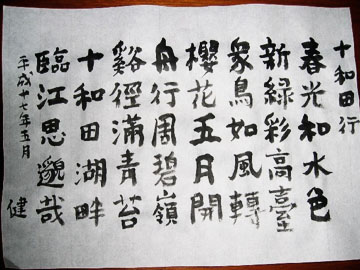 十和田行
春光和水色
新緑彩高臺
衆鳥如風轉
櫻花五月開
舟行周碧嶺
谿徑滿青苔
十和田湖畔
臨江思邈哉
平成十七年五月
健